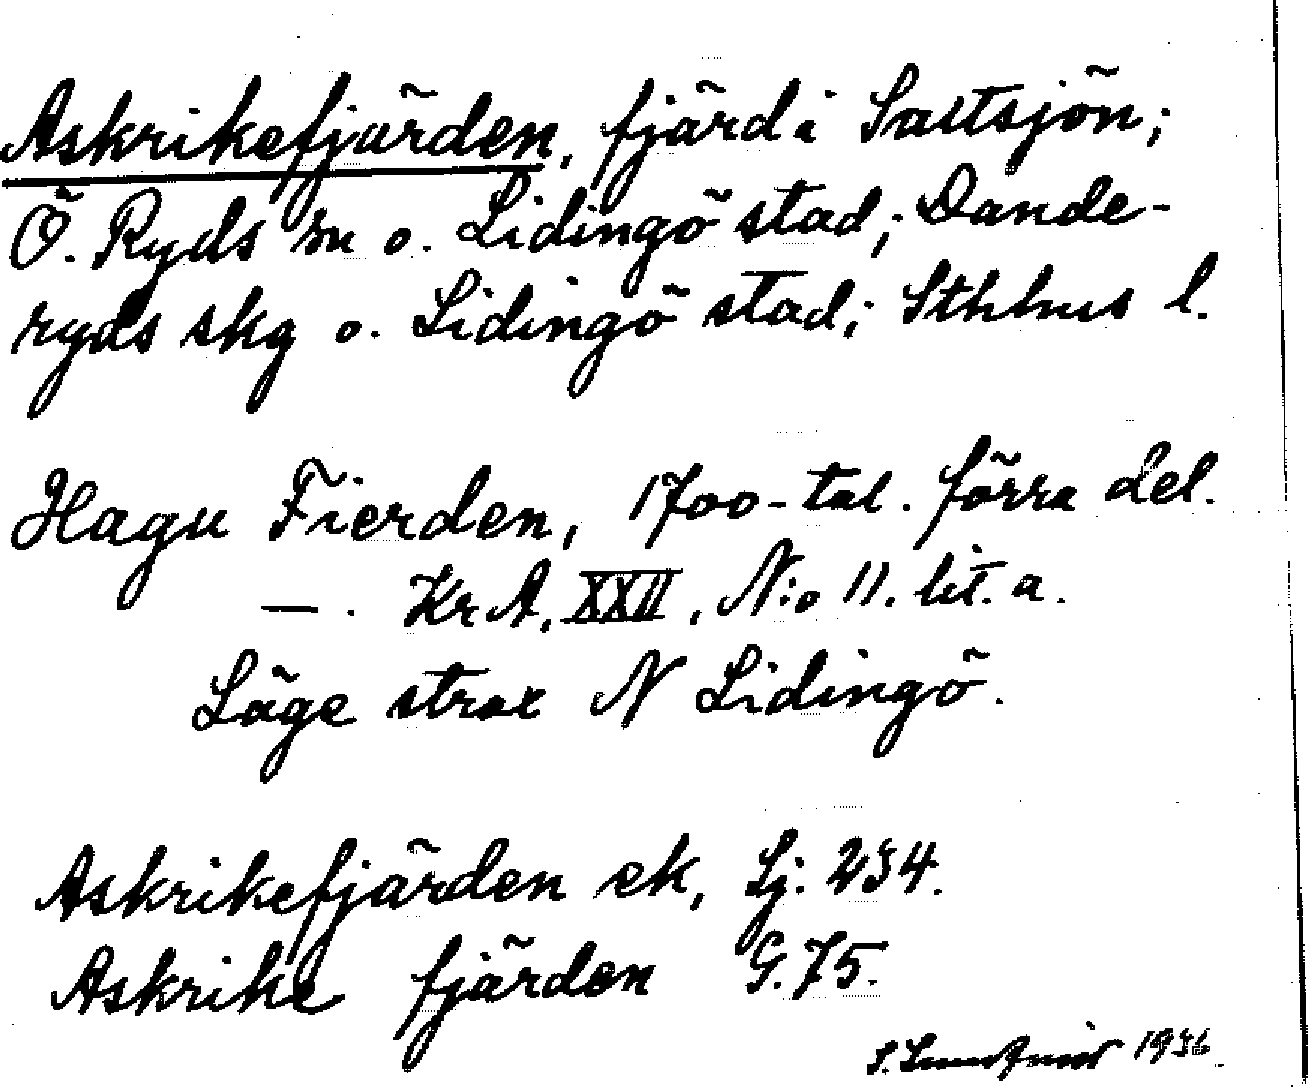 Askrikefjärden, fjärd i Saltsjön;
Ö. Ryds sn o. Lidingö stad; Dande-
ryds skg o. Lidingö stad; Sthlms l.
Hagu Fierden, 1700-tal. förra del.
— . KrA, XXII, N:o 11. lit. a.
Läge strax N Lidingö.
Askrikefjärden ek, Lj. 234.
Askrike fjärden G. 75.
1936